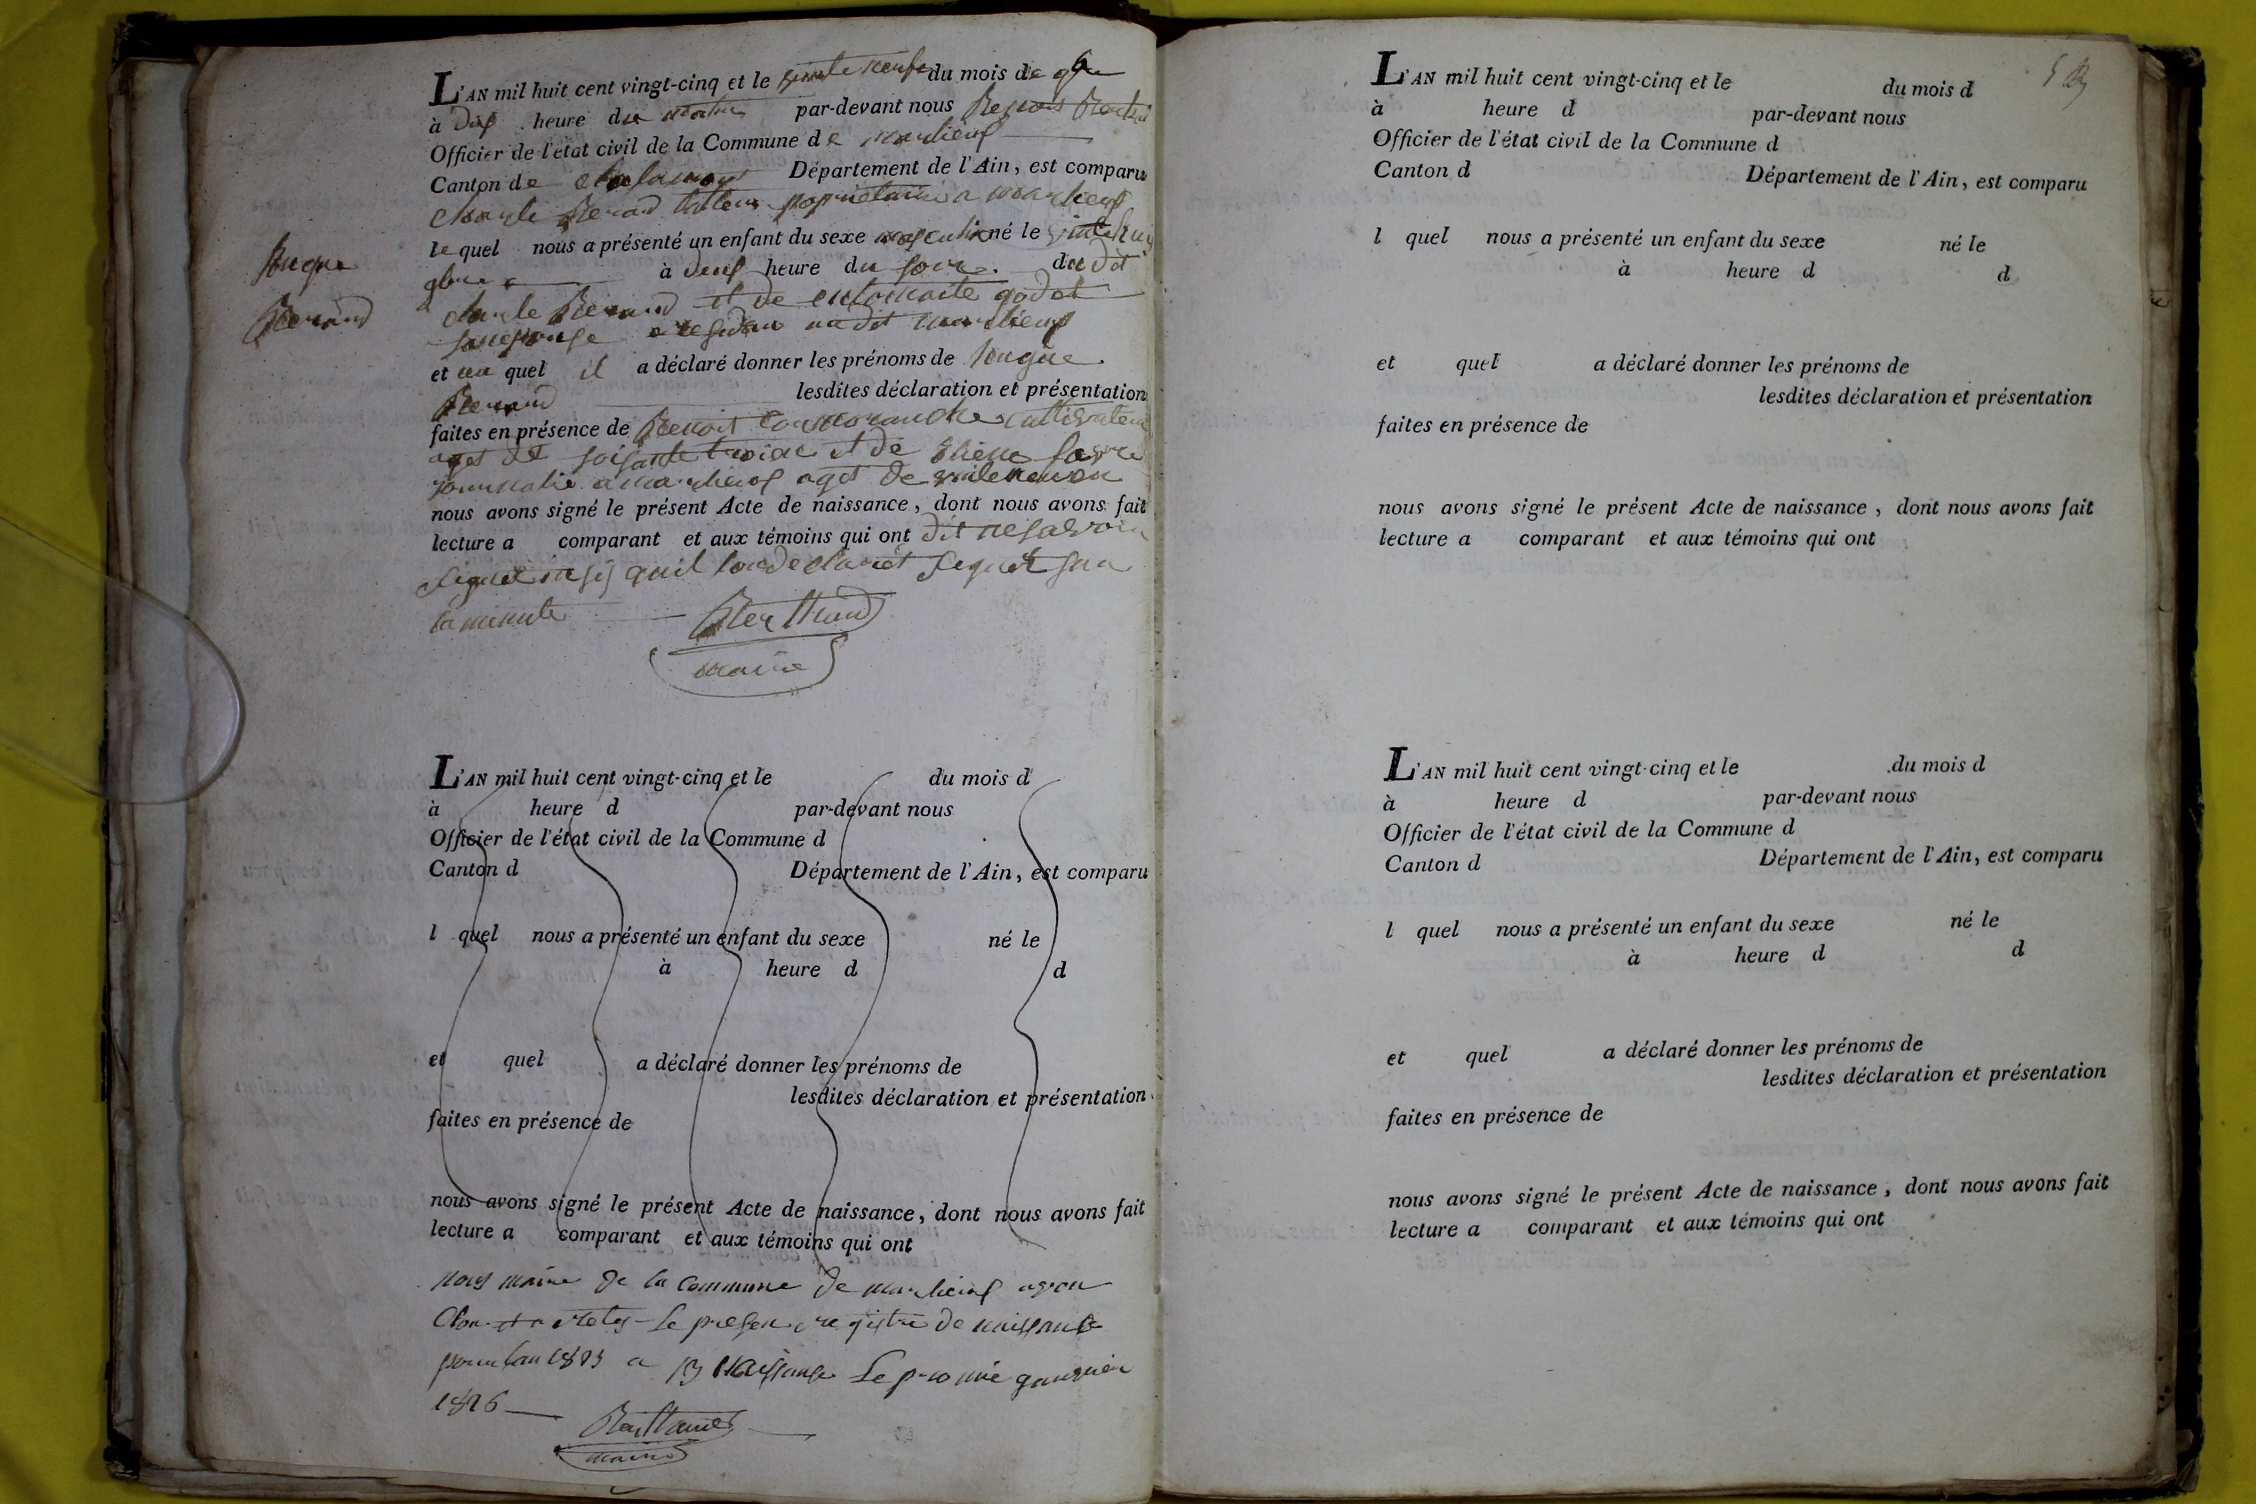 L'AN mil huit cent vingt-cinq et le vinte neufe du mois de 9bre
à dix heure du matin par-devant nous Benois
Officier de l'état civil de la Commune de marlieux
Canton de chalamont Département de l'Ain, est comparu
charle Renard propriétaire a marlieux
lequel nous a présenté un enfant du sexe masculin né le
9bre à deux heure du soir. du dit
charle Renard et de entoinaite godet
son epouse a au dit marlieux
Renard
et au quel il a déclaré donner les prénoms de
Renard lesdites déclaration et présentation
faites en présence de Benoit cormoranche cultivateur
aget de soisante et de
a marlieux aget de
nous avons signé le présent Acte de naissance, dont nous avons fait
lecture a comparant et aux témoins qui ont dit ne savoir
signer
la minute
maire
L'AN mil huit cent vingt-cinq et le du mois d
à heure d par-devant nous
Officier de l'état civil de la Commune d
Canton d Département de l'Ain, est comparu
l quel nous a présenté un enfant du sexe né le
à heure d d
et quel a déclaré donner les prénoms de
lesdites déclaration et présentation
faites en présence de
nous avons signé le présent Acte de naissance, dont nous avons fait
lecture a comparant et aux témoins qui ont
nous maire de la commune de marlieux avon
clos et aretes le presen registre de naissance
pour lan 1825 a naissanse Le p
1826
maire
L'AN mil huit cent vingt-cinq et le du mois d
à heure d par-devant nous
Officier de l'état civil de la Commune d
Canton d Département de l'Ain, est comparu
l quel nous a présenté un enfant du sexe né le
à heure d d
et quel a déclaré donner les prénoms de
lesdites déclaration et présentation
faites en présence de
nous avons signé le présent Acte de naissance, dont nous avons fait
lecture a comparant et aux témoins qui ont
L'AN mil huit cent vingt-cinq et le du mois d
à heure d par-devant nous
Officier de l'état civil de la Commune d
Canton d Département de l'Ain, est comparu
l quel nous a présenté un enfant du sexe né le
à heure d d
et quel a déclaré donner les prénoms de
lesdites déclaration et présentation
faites en présence de
nous avons signé le présent Acte de naissance, dont nous avons fait
lecture a comparant et aux témoins qui ont